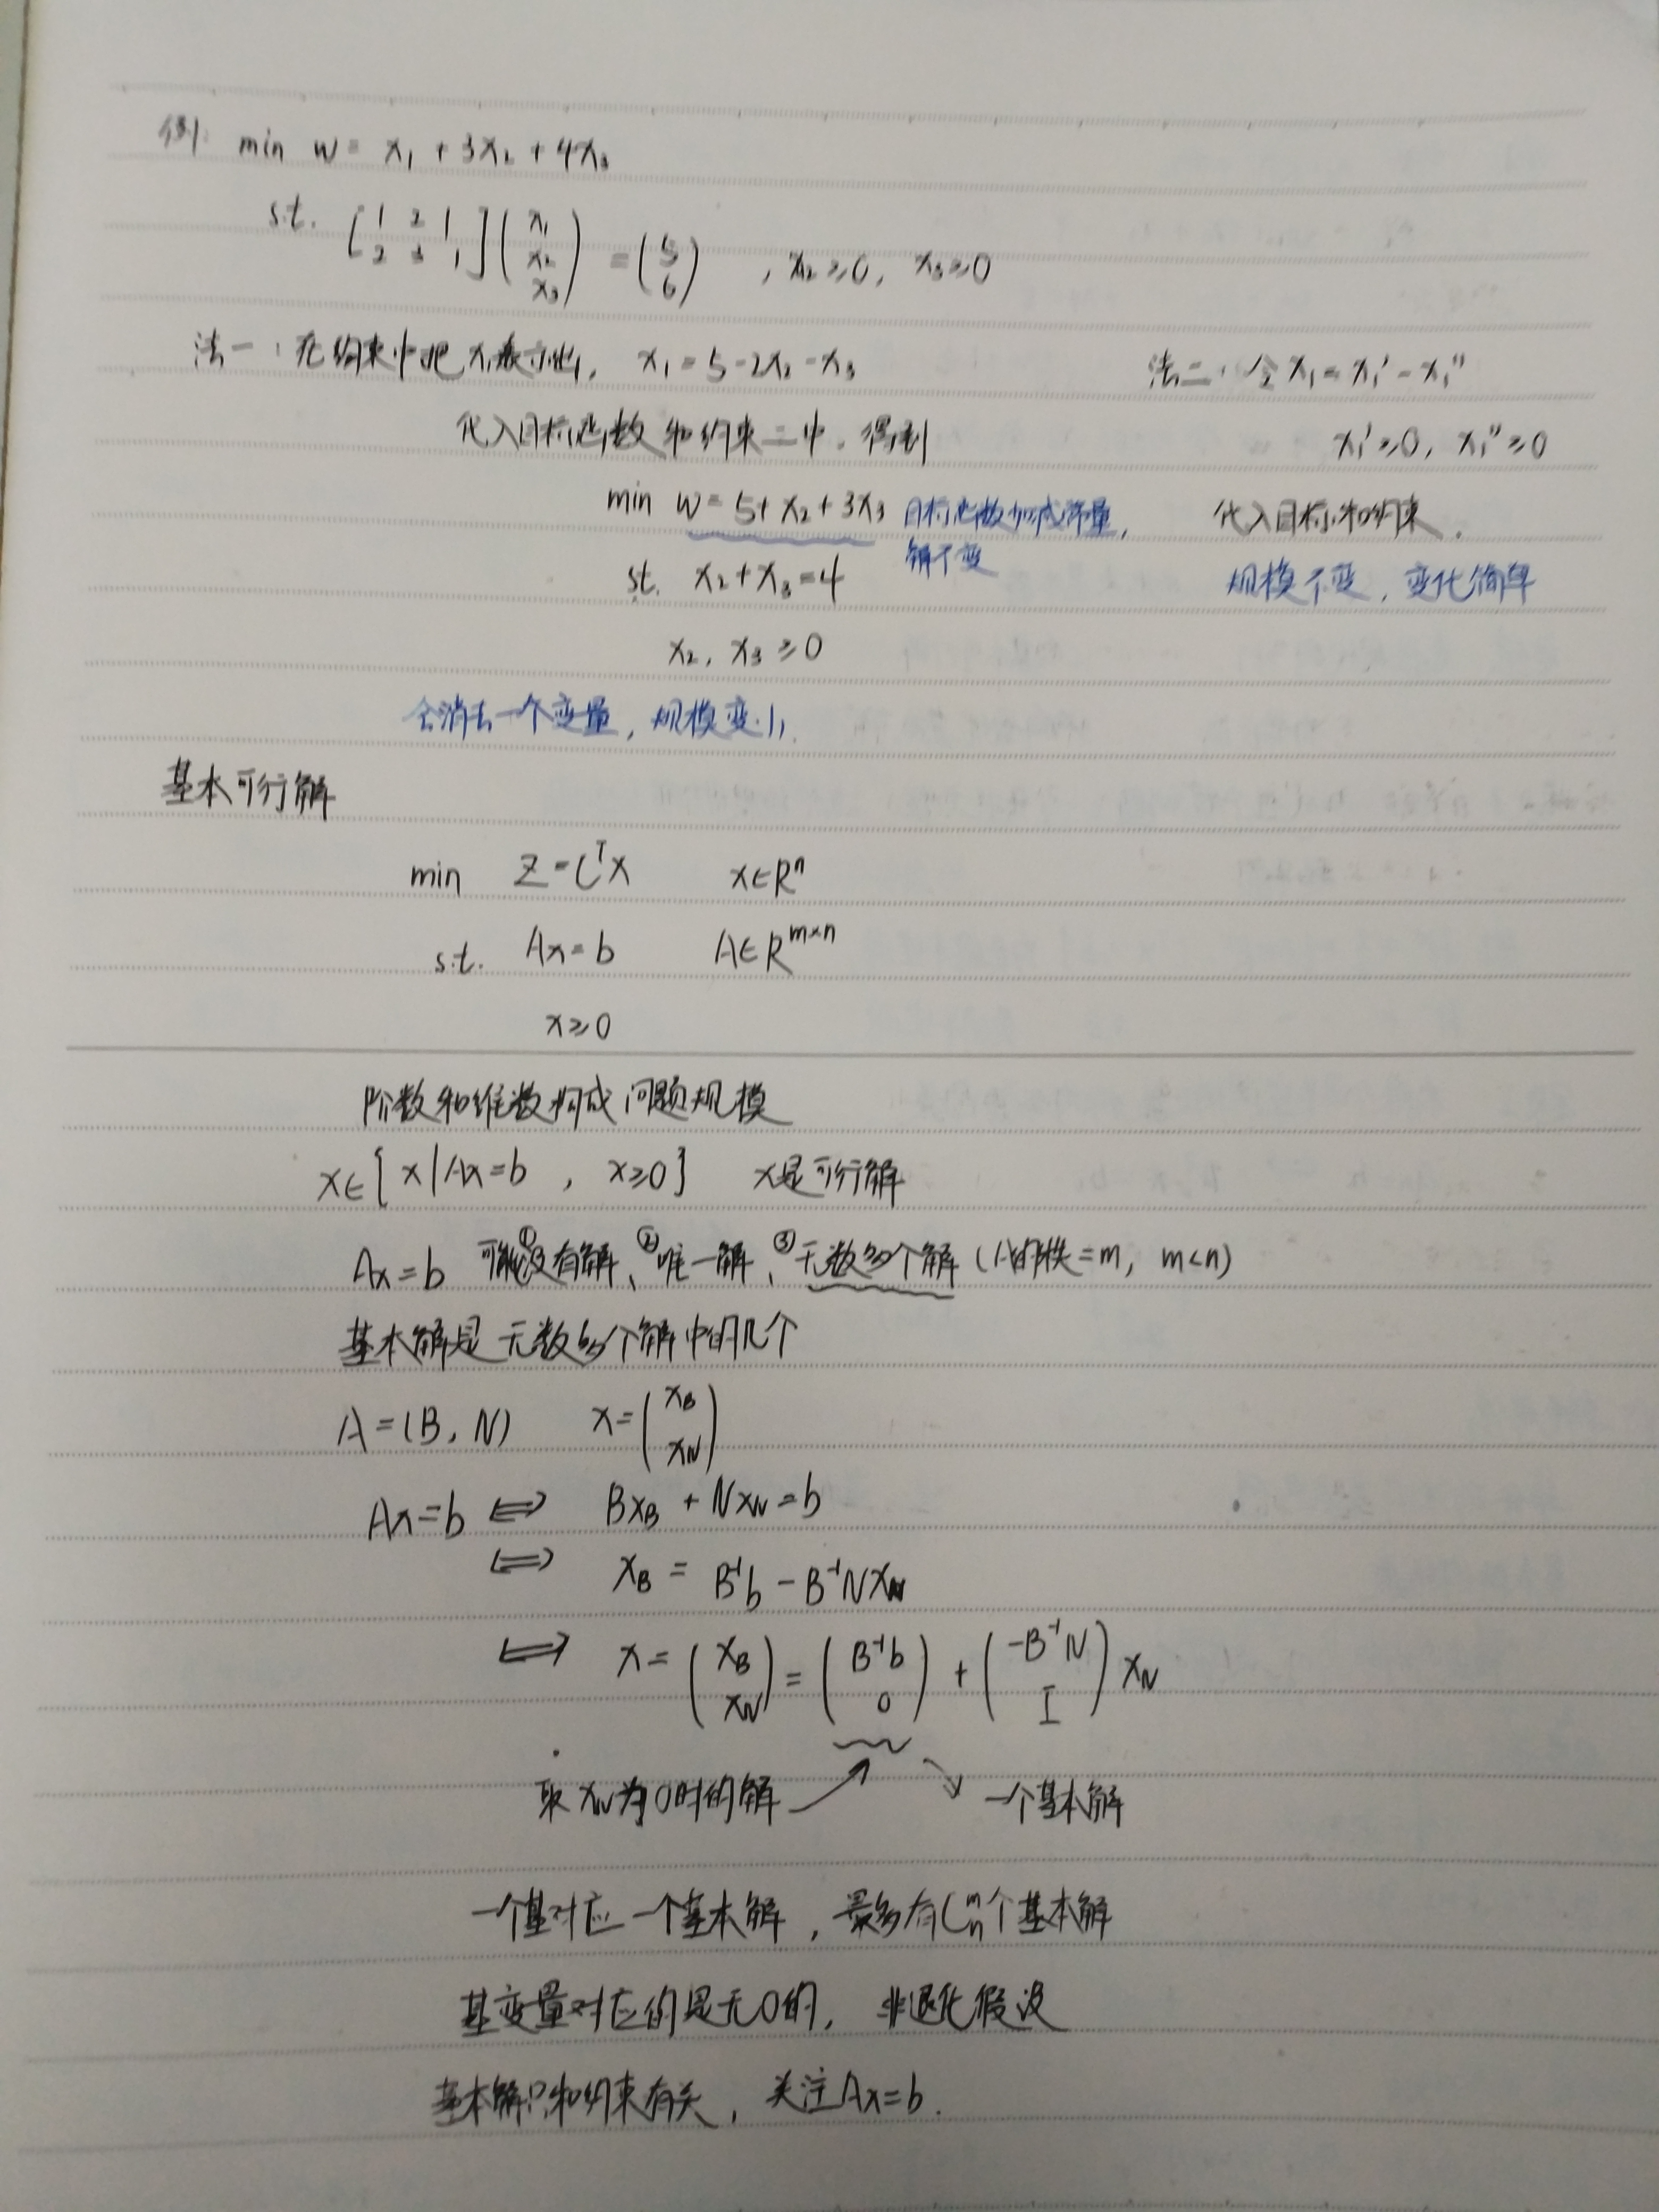 例: min w = x₁ + 3x₂ + 4x₃
s.t. [1 2 1; 2 3 1](x₁; x₂; x₃) = (5; 6) , x₂≥0, x₃≥0
法一:在约束中把x₁表示出, x₁=5-2x₂-x₃
代入目标函数和约束二中,得到
min w=5+x₂+3x₃ 目标函数加减常量,
解不变
st. x₂+x₃=4
x₂, x₃≥0
会消去一个变量,规模变小.
法二:令x₁=x₁'-x₁''
x₁'≥0, x₁''≥0
代入目标和约束.
规模不变,变化简单
基本可行解
min Z=CᵀX x∈Rⁿ
s.t. Ax=b A∈R^{m×n}
x≥0
阶数和维数构成问题规模
x∈{x|Ax=b , x≥0} x是可行解
Ax=b 可能①没有解、②唯一解、③无数多个解(A的秩=m, m<n)
基本解是无数多个解中的几个
A=(B, N) x=(x_B; x_N)
Ax=b ⟺ Bx_B + Nx_N=b
⟺ x_B = B⁻¹b - B⁻¹Nx_N
⟺ x=(x_B; x_N)=(B⁻¹b; 0)+(-B⁻¹N; I)x_N
取x_N为0时的解 一个基本解
一个基对应一个基本解,最多有C_n^m个基本解
基变量对应的是无0的, 非退化假设
基本解只和约束有关,关注Ax=b.